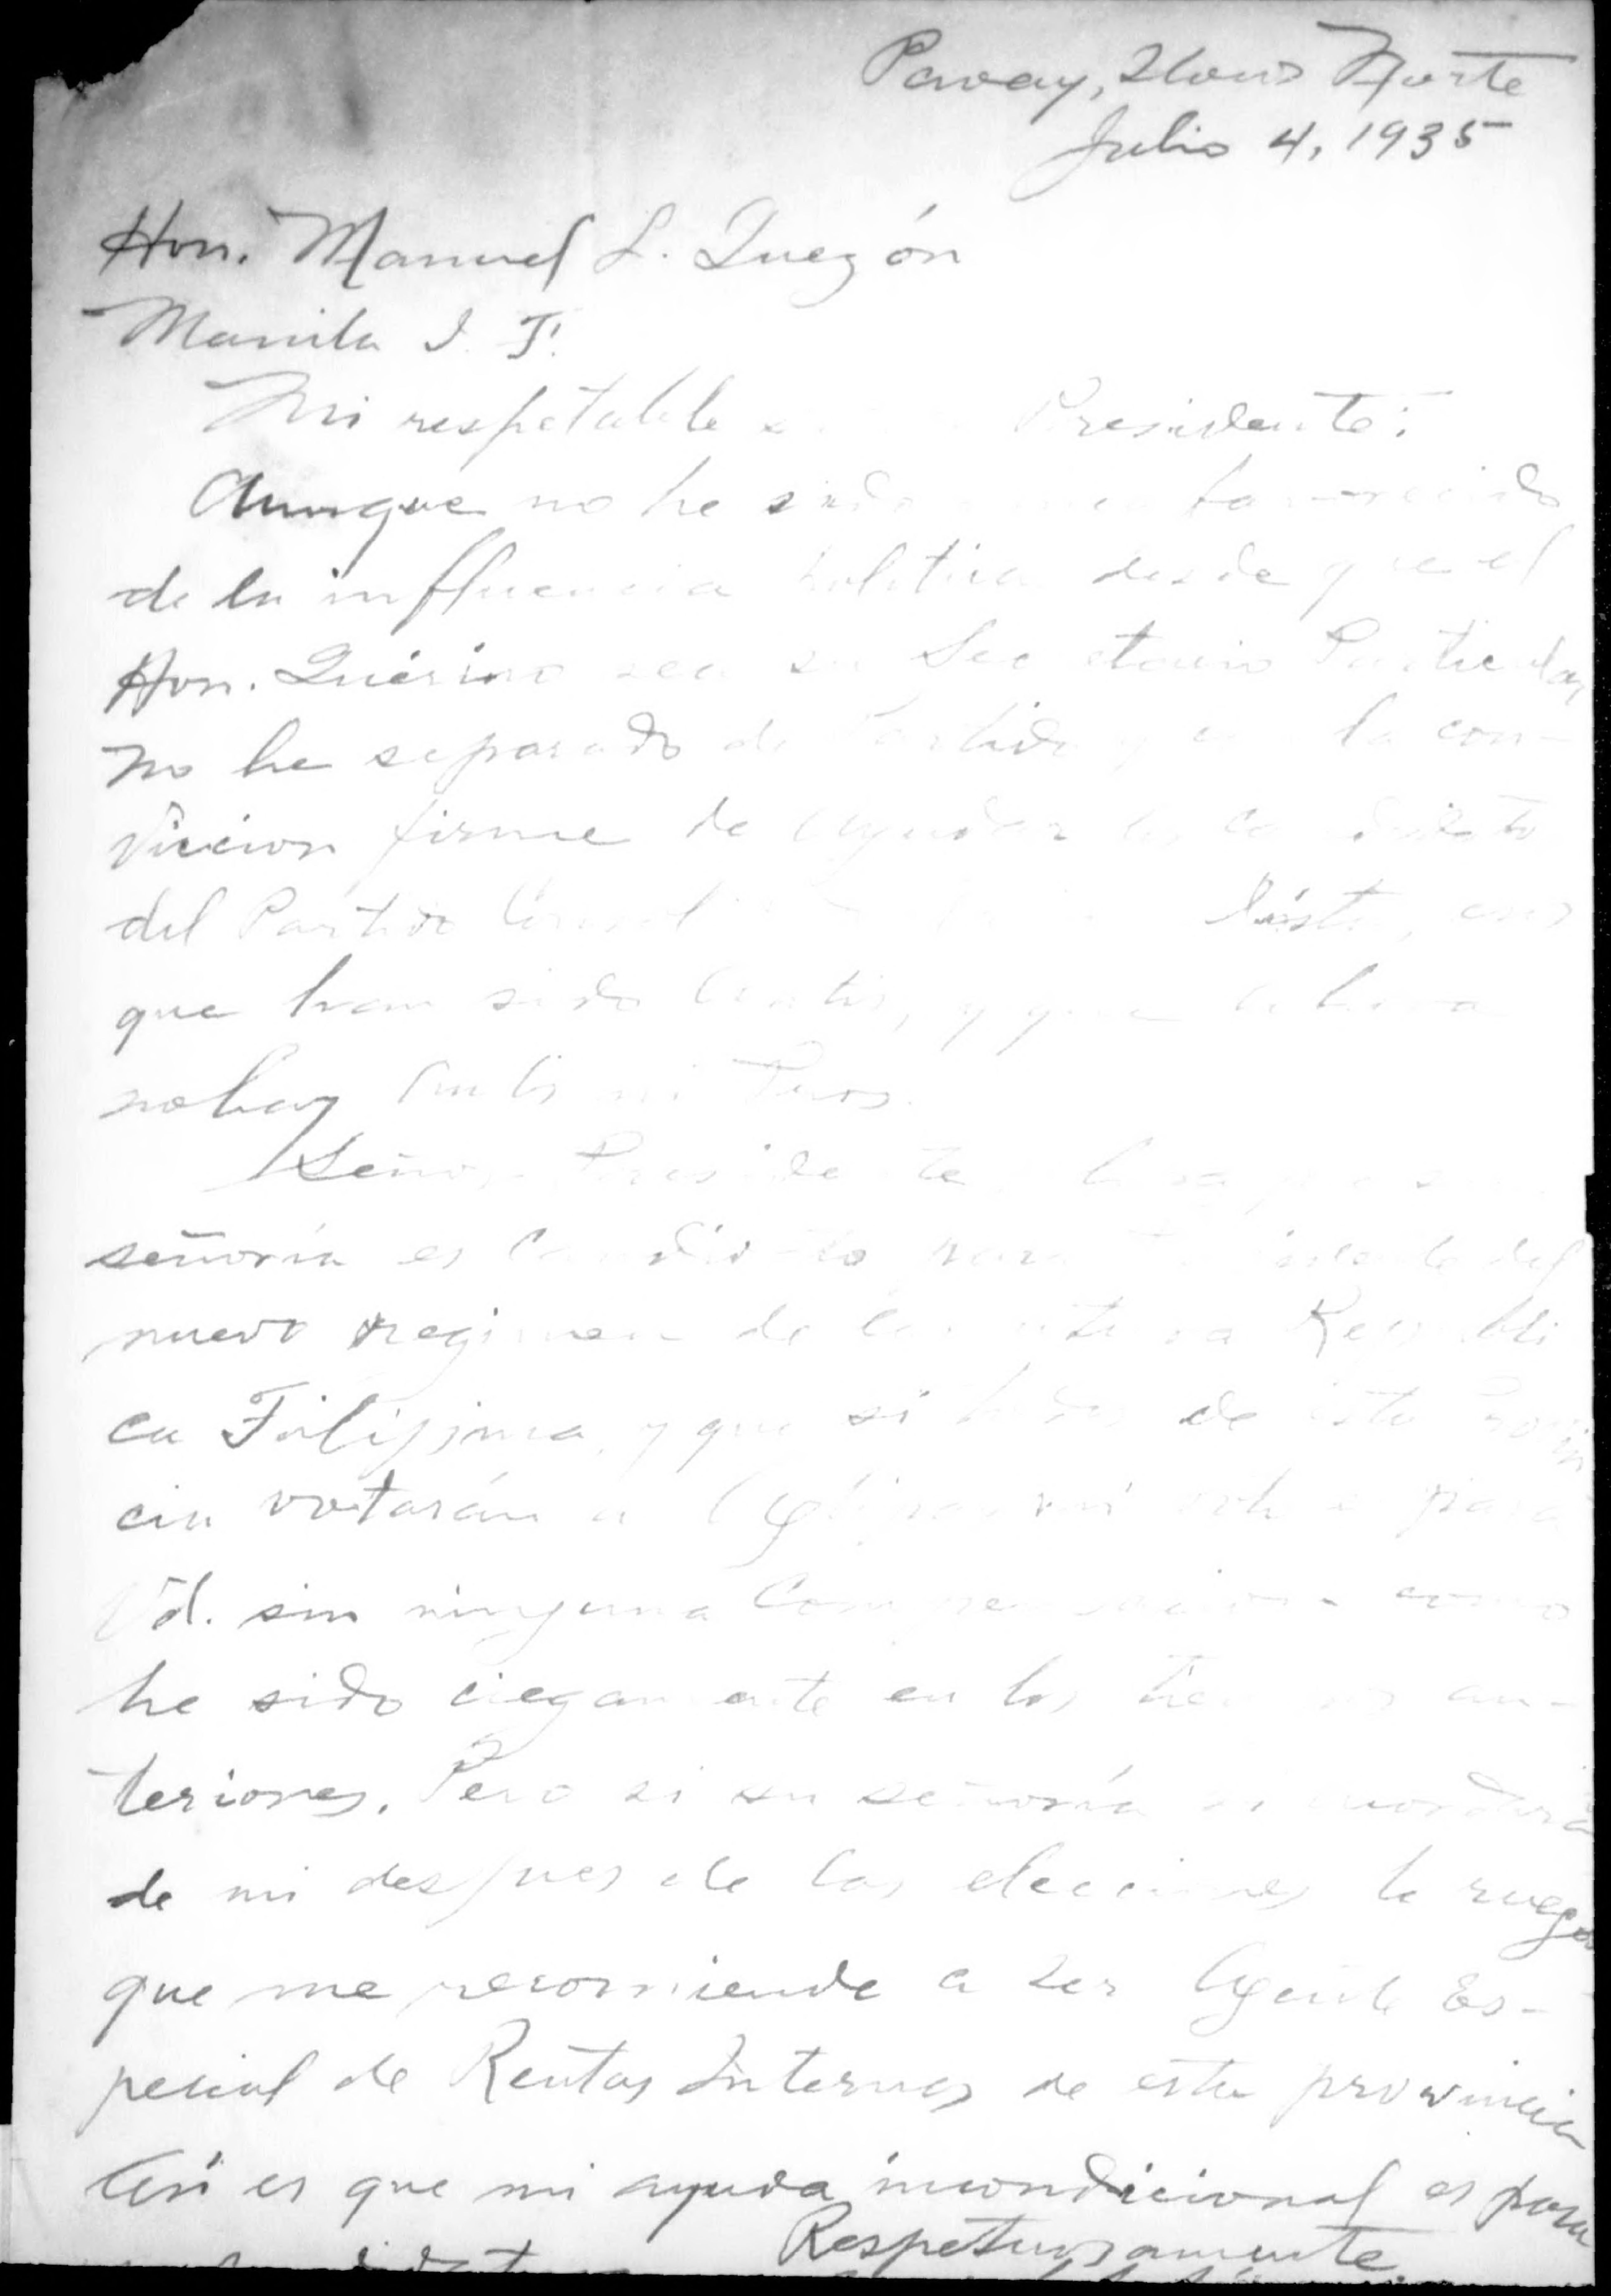 Paoay, Ilocos Norte
Julio 4, 1935
Hon. Manuel L. Quezón
Manila I. F.
Mi respetable Presidente:
Aunque no he sido
de la influencia politica desde que el
Hon. Quirino sea su Secretario Particular,
no he separado del Partido y con la con-
viccion firme de ayudar
del Partido
que han sido Antis, y que ahora
no hay Antis ni Pros.
Señor Presidente,
señoría es Candidato para Presidente del
nuevo regimen de la futura Republi
ca Filipina, y que si todos de esta Provin
cia votarán a Aglipay, mi voto es para
Vd. sin ninguna compensacion como
he sido ciegamente en los tiempos an-
teriores. Pero si su señoría
de mi despues de las elecciones le ruego
que me recomiende a ser Agente Es-
pecial de Rentas Internas de esta provincia
Asi es que mi ayuda incondicional es para
Respetuosamente